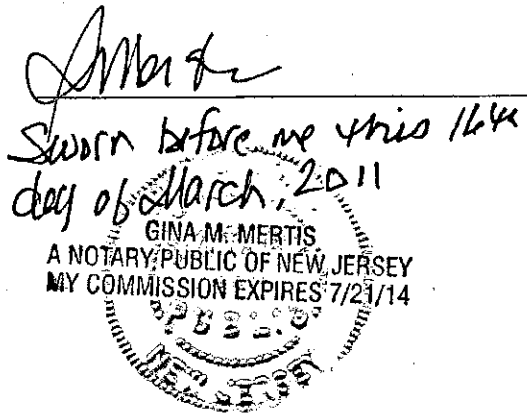 Sworn before me this 16th
day of March, 2011
GINA M. MERTIS
A NOTARY PUBLIC OF NEW JERSEY
MY COMMISSION EXPIRES 7/21/14
NEW JERSEY